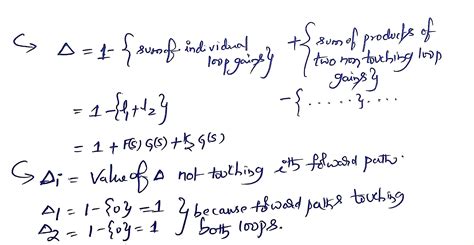 ↳ Δ = 1 - {sum of individual loop gains} + {sum of products of two non touching loop gains} - {.....}....
= 1 - {l₁ + l₂}
= 1 + F(s) G(s) + K₂ G(s)
↳ Δi = Value of Δ not touching ith forward path.
Δ1 = 1 - {0} = 1 } because forward paths touching
Δ2 = 1 - {0} = 1 } both loops.